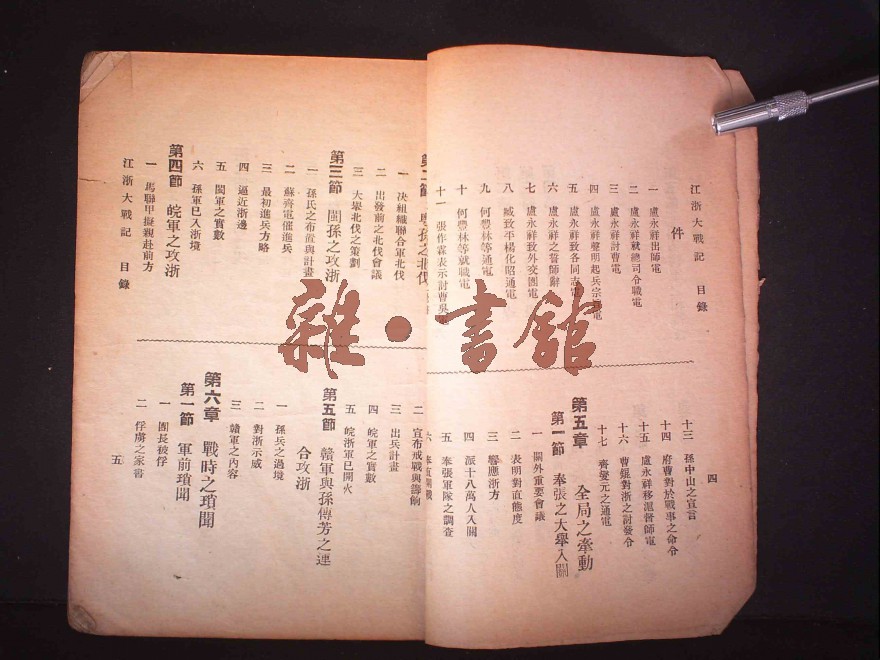 江浙大戰記 目錄
件
一 盧永祥出師電
二 盧永祥就總司令職電
三 盧永祥討曹電
四 盧永祥聲明起兵宗
五 盧永祥致各同志電
六 盧永祥之誓師辭
七 盧永祥致外交團電
八 臧致平楊化昭通電
九 何豐林等通電
十 何豐林等就職電
十一 張作霖表示討曹吳
十三 孫中山之宣言
十四 府曹對於戰事之命令
十五 盧永祥移滬督師電
十六 曹錕對浙之討發令
十七 齊燮元之通電
第五章 全局之牽動
第一節 奉張之大舉入關
一 關外重要會議
二 表明對直態度
三 響應浙方
四 派十八萬人入關
五 奉張軍隊之調查
六 奉直開戰
四
第二節 粵孫之北伐
一 决組織聯合軍北伐
二 出發前之北伐會議
三 大舉北伐之策劃
第三節 閩孫之攻浙
一 孫氏之布置與計畫
二 蘇齊電催進兵
三 最初進兵方略
四 逼近浙邊
五 閩軍之實數
六 孫軍已入浙境
第四節 皖軍之攻浙
一 馬聯甲擬親赴前方
江浙大戰記 目錄
二 宣布戒戰與籌餉
三 出兵計畫
四 皖軍之實數
五 皖浙軍已開火
第五節 贛軍與孫傳芳之連
合攻浙
一 孫兵之過境
二 對浙示威
三 贛軍之內容
第六章 戰時之瑣聞
第一節 軍前瑣聞
一 團長被俘
二 俘虜之家書
五
雜·書館